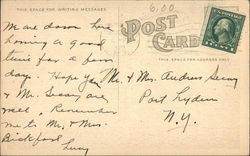 THIS SPACE FOR WRITING MESSAGES
6.00
POST CARD
THIS SPACE FOR ADDRESS ONLY
We are down here
having a good
time for a few
days. Hope you
& Mr. are
well. Remember
me to Mr. & Mrs.
Bickford.
Lucy
Mr. & Mrs. Andrew
Port Leyden
N.Y.